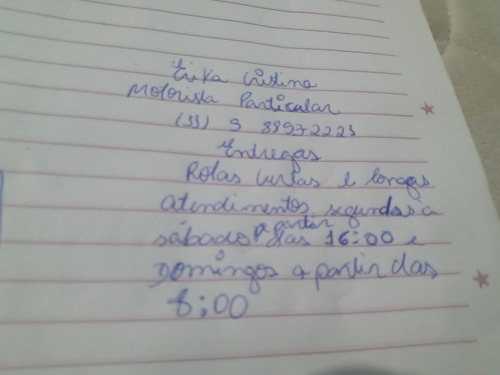 Erika Cristina
Motorista Particular
(33) 9 88972225
Entregas
Rotas curtas e longas
atendimentos segundas a
sábado a partir das 16:00 e
Domingos a partir das
8:00